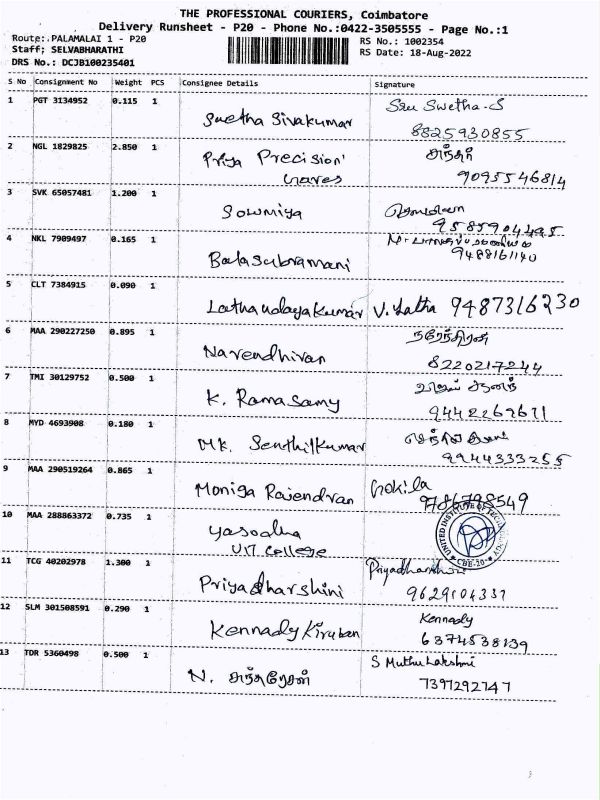 THE PROFESSIONAL COURIERS, Coimbatore
Delivery Runsheet - P20 - Phone No.:0422-3505555 - Page No.:1
Route:.PALAMALAI 1 - P20
RS No.: 1002354
Staff; SELVABHARATHI
RS Date: 18-Aug-2022
DRS No.: DCJB100235401
S No Consignment No Weight PCS Consignee Details Signature
1 PGT 3134952 0.115 1 Swetha Sivakumar Sru Swetha-S
8825930855
2 NGL 1829825 2.850 1 Priya Precision
9095546814
3 SVK 65057481 1.200 1 Sowmiya
9585904495
4 NKL 7909497 0.165 1 Balasubramani
9488161140
5 CLT 7384915 0.090 1 Latha udayakumar V. Latha 9487316230
6 MAA 290227250 0.895 1 Narendhiran நரேந்திரன்
8220217244
7 TMI 30129752 0.500 1 K. Ramasamy
9442267671
8 MYD 4693908 0.180 1 MK. Senthilkumar
9944333255
9 MAA 290519264 0.865 1 Moniga Rajendran Gokila
9786798549
10 MAA 288863372 0.735 1 yasodha
UIT College
UNITED INSTITUTE OF TECHNOLOGY
CBE-20
11 TCG 40202978 1.300 1 Priyadharshini Priyadharshini
9629104337
12 SLM 301508591 0.290 1 Kennady Kiruban Kennady
6374538139
13 TDR 5360498 0.500 1 N. S Muthulakshmi
7397292747